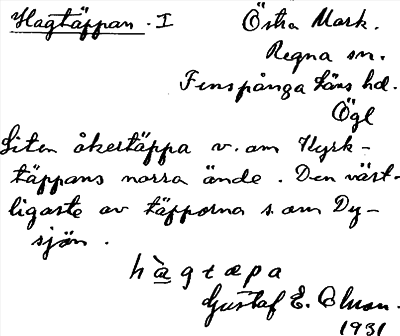 Hagtäppan. I
Östra Mark.
Regna sn.
Finspånga läns hd.
Ögl
Liten åkertäppa v. om Kyrk-
täppans norra ände. Den väst-
ligaste av täpporna s. om Dy-
sjön.
hàgtæpa
Gustaf E. Olsson.
1931